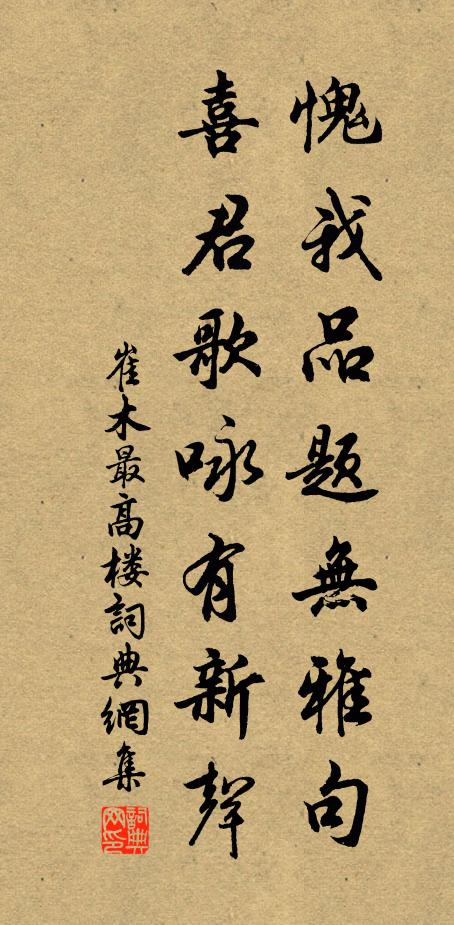 愧我品题無雅句
喜君歌咏有新聲
崔木最高楼詞典網集
詞典網印